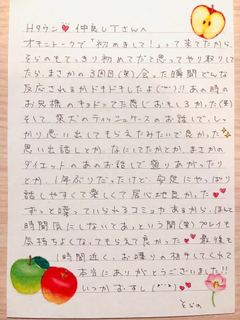 Hタウン❤仲良しTさんへ
オキニトークで「初めまして！」って来てたから、
そらのもてっきり初めてだと思ってやり取りして
たら、まさかの3回目(笑)会った瞬間どんな
反応されるかドキドキしたよ(^^)!!あの時の
お兄様のキョドってた感じおもしろかった(笑)
そして、柴犬のティッシュケースのお話しで、しっ
かり思い出してもらえたみたいで良かった✨
思い出話しとか、なにしてたかとか、まさかの
ダイエットのあのお話しで盛りあがったり
とか、1年ぶりだったけど、安定にやっぱり
話しやすくて楽しくて居心地良かった❤
ずーっと喋っていられるコミュ力あるから、ほんと
時間気にしないであっという間(笑)プレイも
気持ちよくなってもらえて良かった❤最後も
1時間近く、お喋りの相手してくれて
本当にありがとうございました!!
いつかおすし(^^)❤
そらの